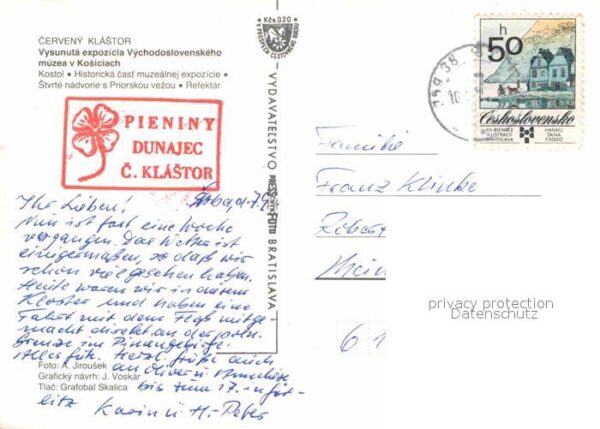 ČERVENÝ KLÁŠTOR
Vysunutá expozícia Východoslovenského
múzea v Košiciach
Kostol • Historická časť muzeálnej expozície •
Štvrté nádvorie s Priorskou vežou • Refektár
PIENINY
DUNAJEC
Č. KLÁŠTOR
Ihr Lieben!
Nun ist fast eine Woche
vergangen. Das Wetter ist
einigermaßen, so daß wir
schon viel gesehen haben.
Heute waren wir in diesem
Kloster und haben eine
Fahrt mit dem Floß mitge-
macht direkt an der poln.
Grenze im Pieninengebirge.
Alles gut. Herzl. Grüße auch
an Oliver u.
bis zum 17. in Gör-
litz Karin u. H.-Peter
Foto: A. Jiroušek
Grafický návrh: J. Voskár
Tlač: Grafobal Skalica
Kčs 0,20
VYDAVATEĽSTVO PRESSFOTO BRATISLAVA
50 h
Československo
XII BIENÁLE
ILUSTRÁCIÍ
BRATISLAVA
HANNU
TAINA
FÍNSKO
Familie
Franz Klinke
privacy protection
Datenschutz